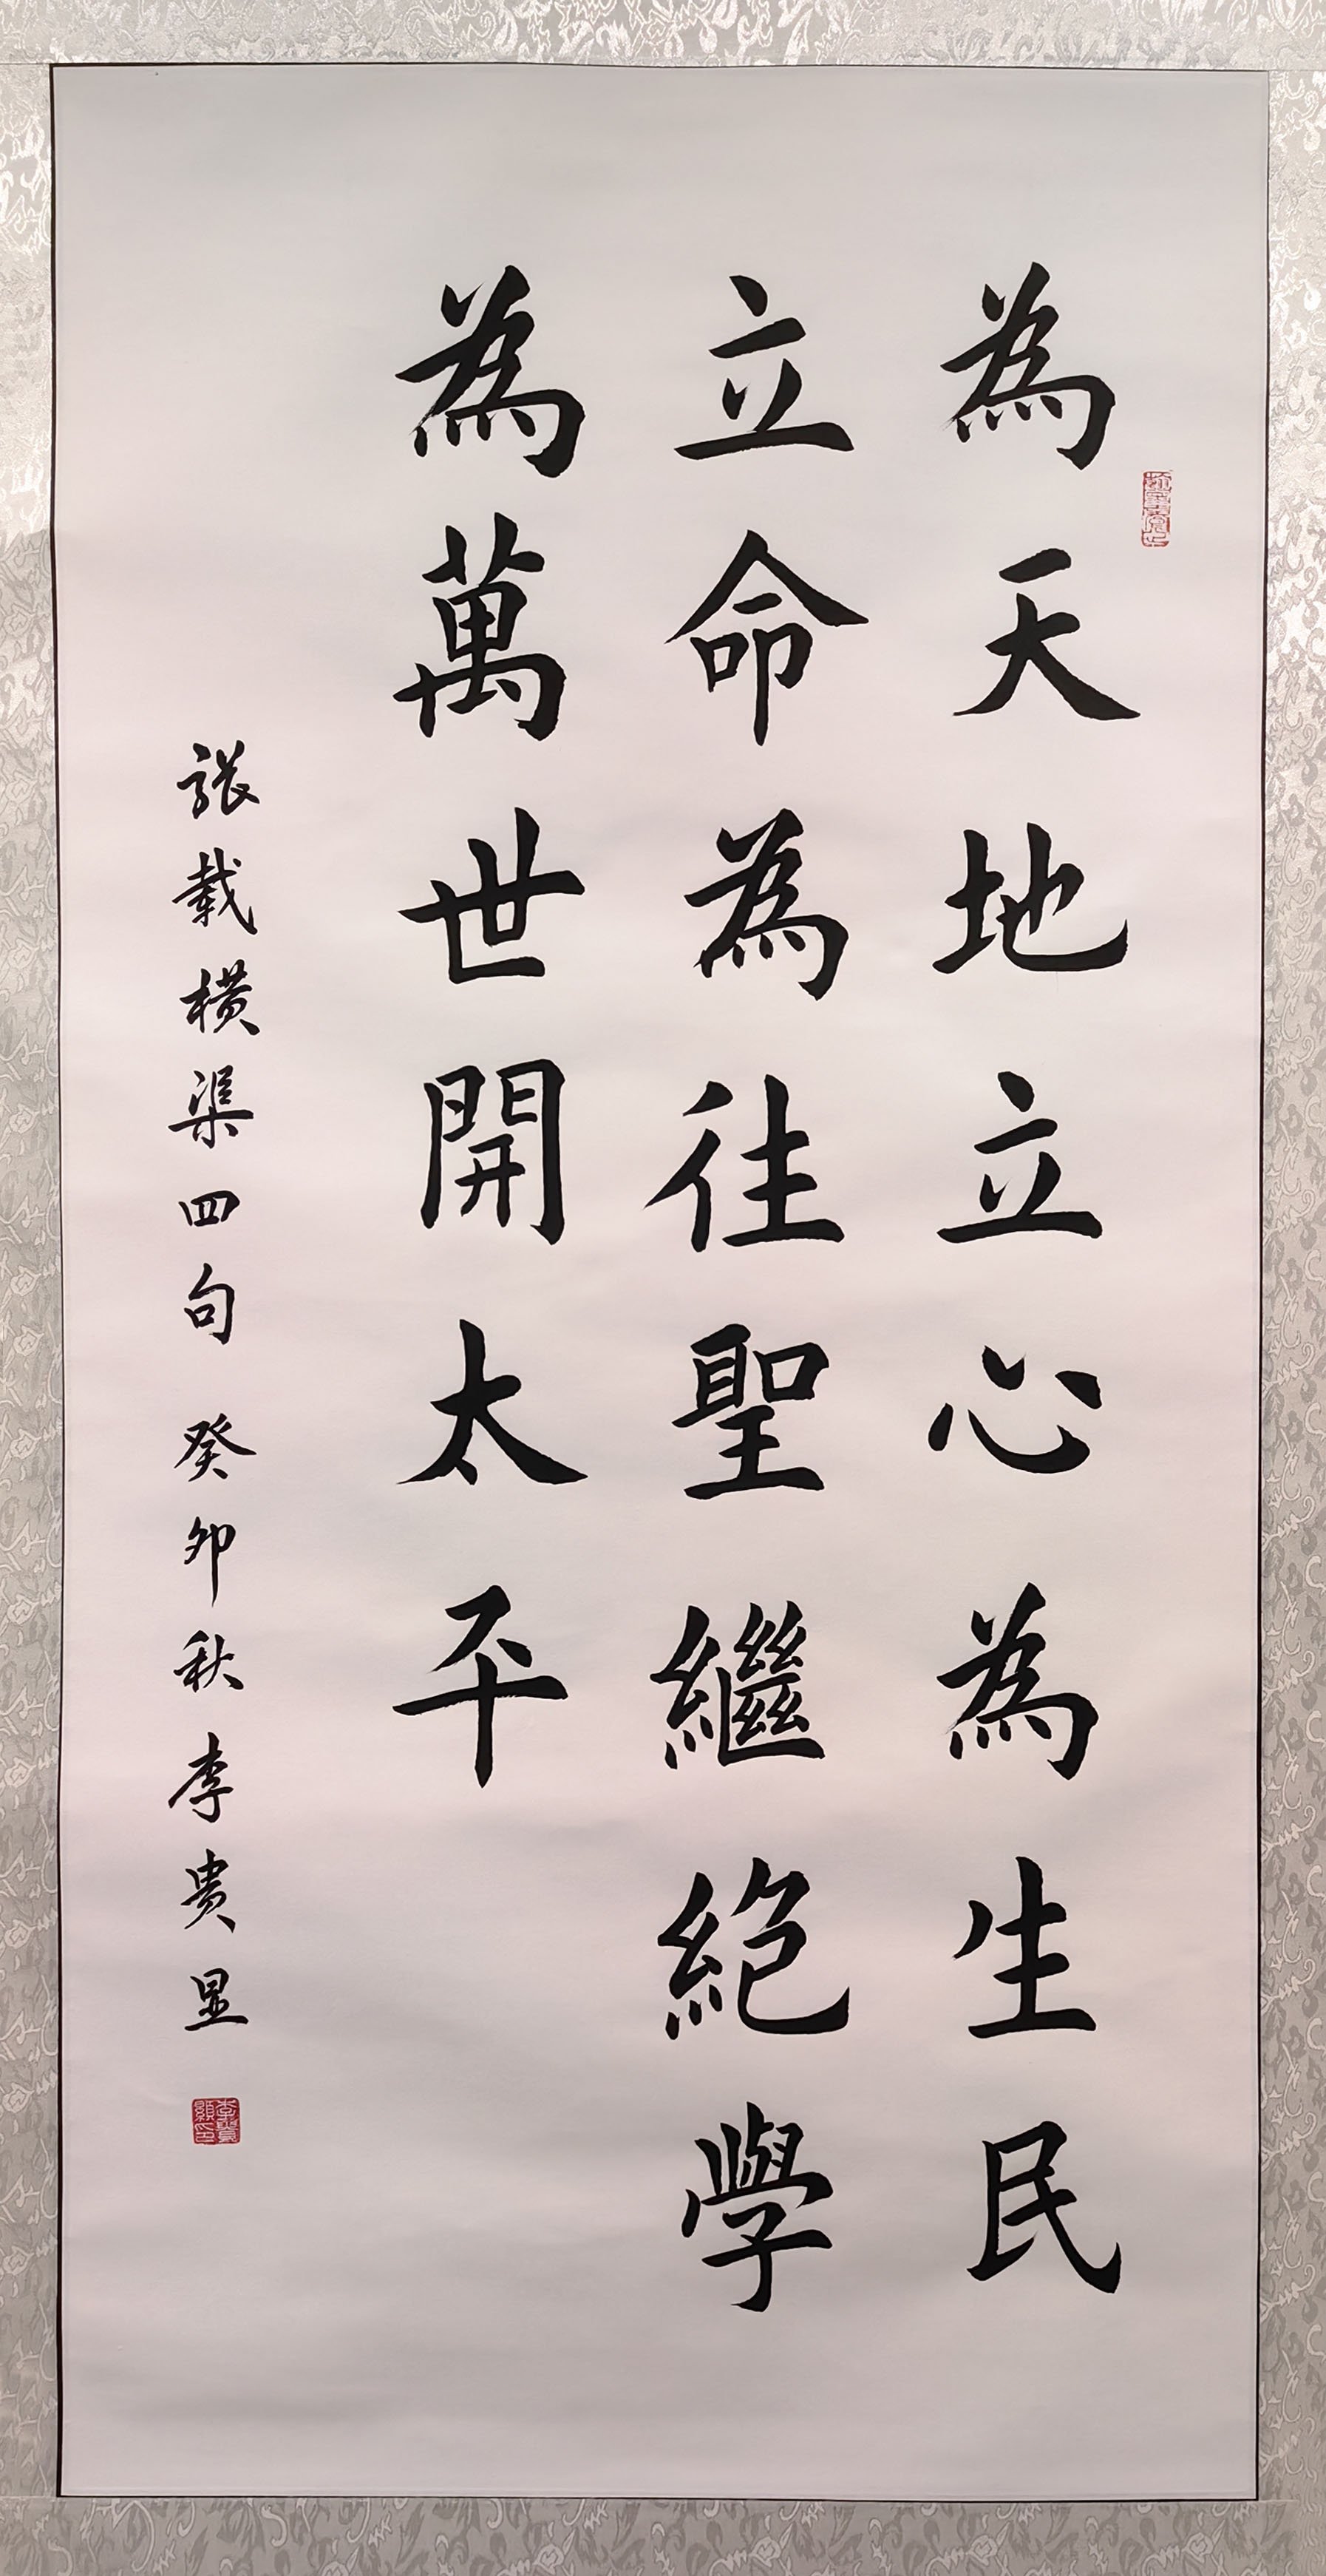 為天地立心為生民
立命為往聖繼絕學
為萬世開太平
張載橫渠四句 癸卯秋 李贵显
李貴顯印